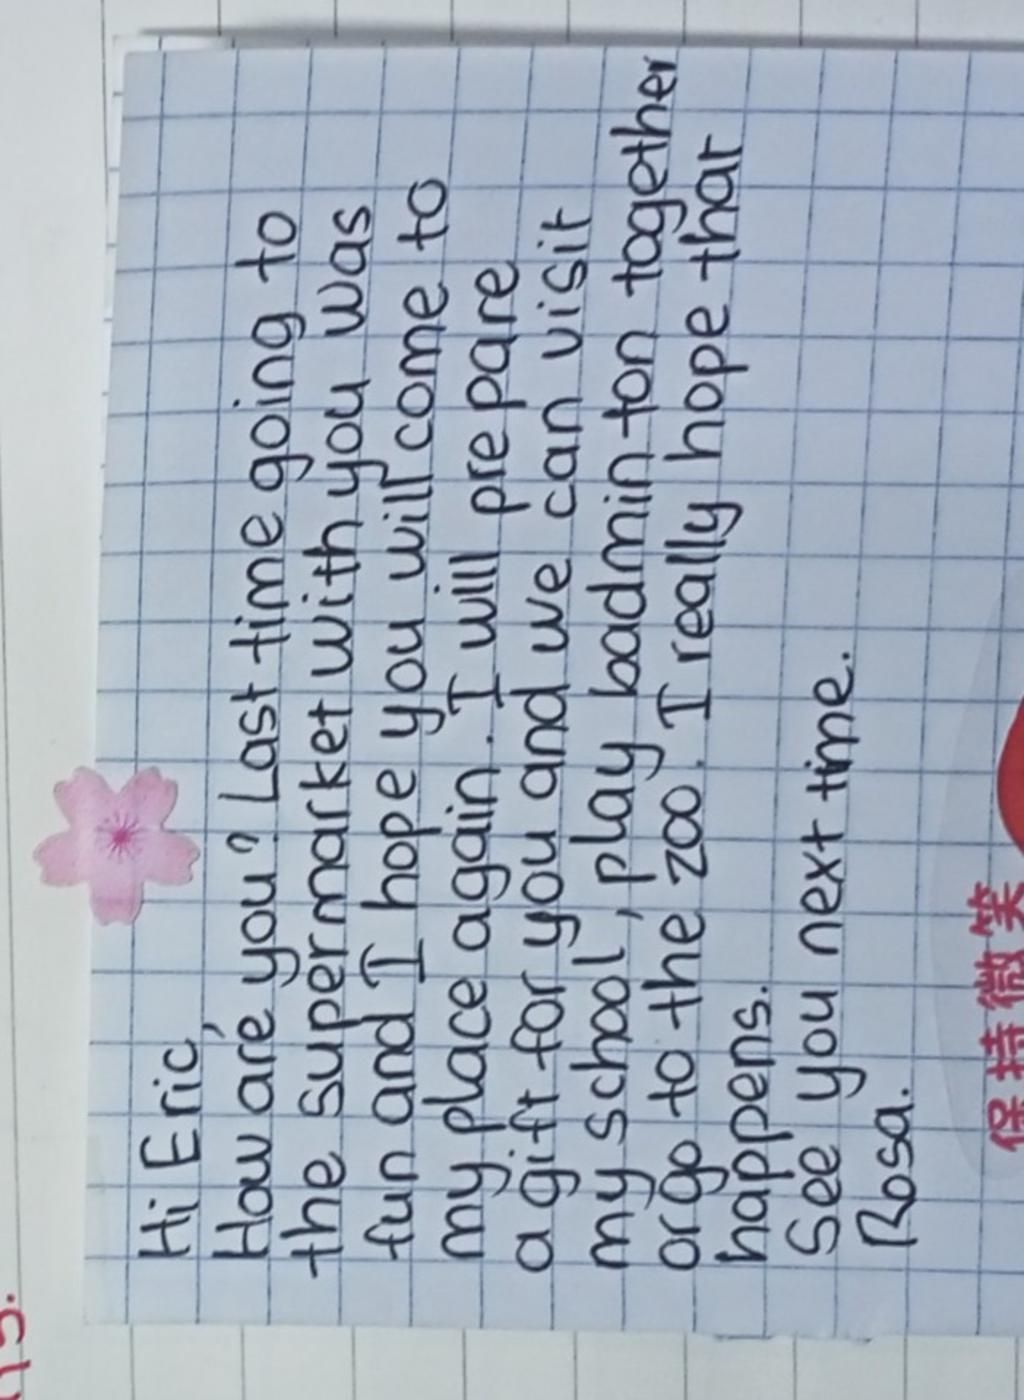 Hi Eric,
How are you? Last time going to
the supermarket with you was
fun and I hope you will come to
my place again. I will prepare
a gift for you and we can visit
my school, play badminton together
or go to the zoo. I really hope that
happens.
See you next time.
Rosa.
保持微笑